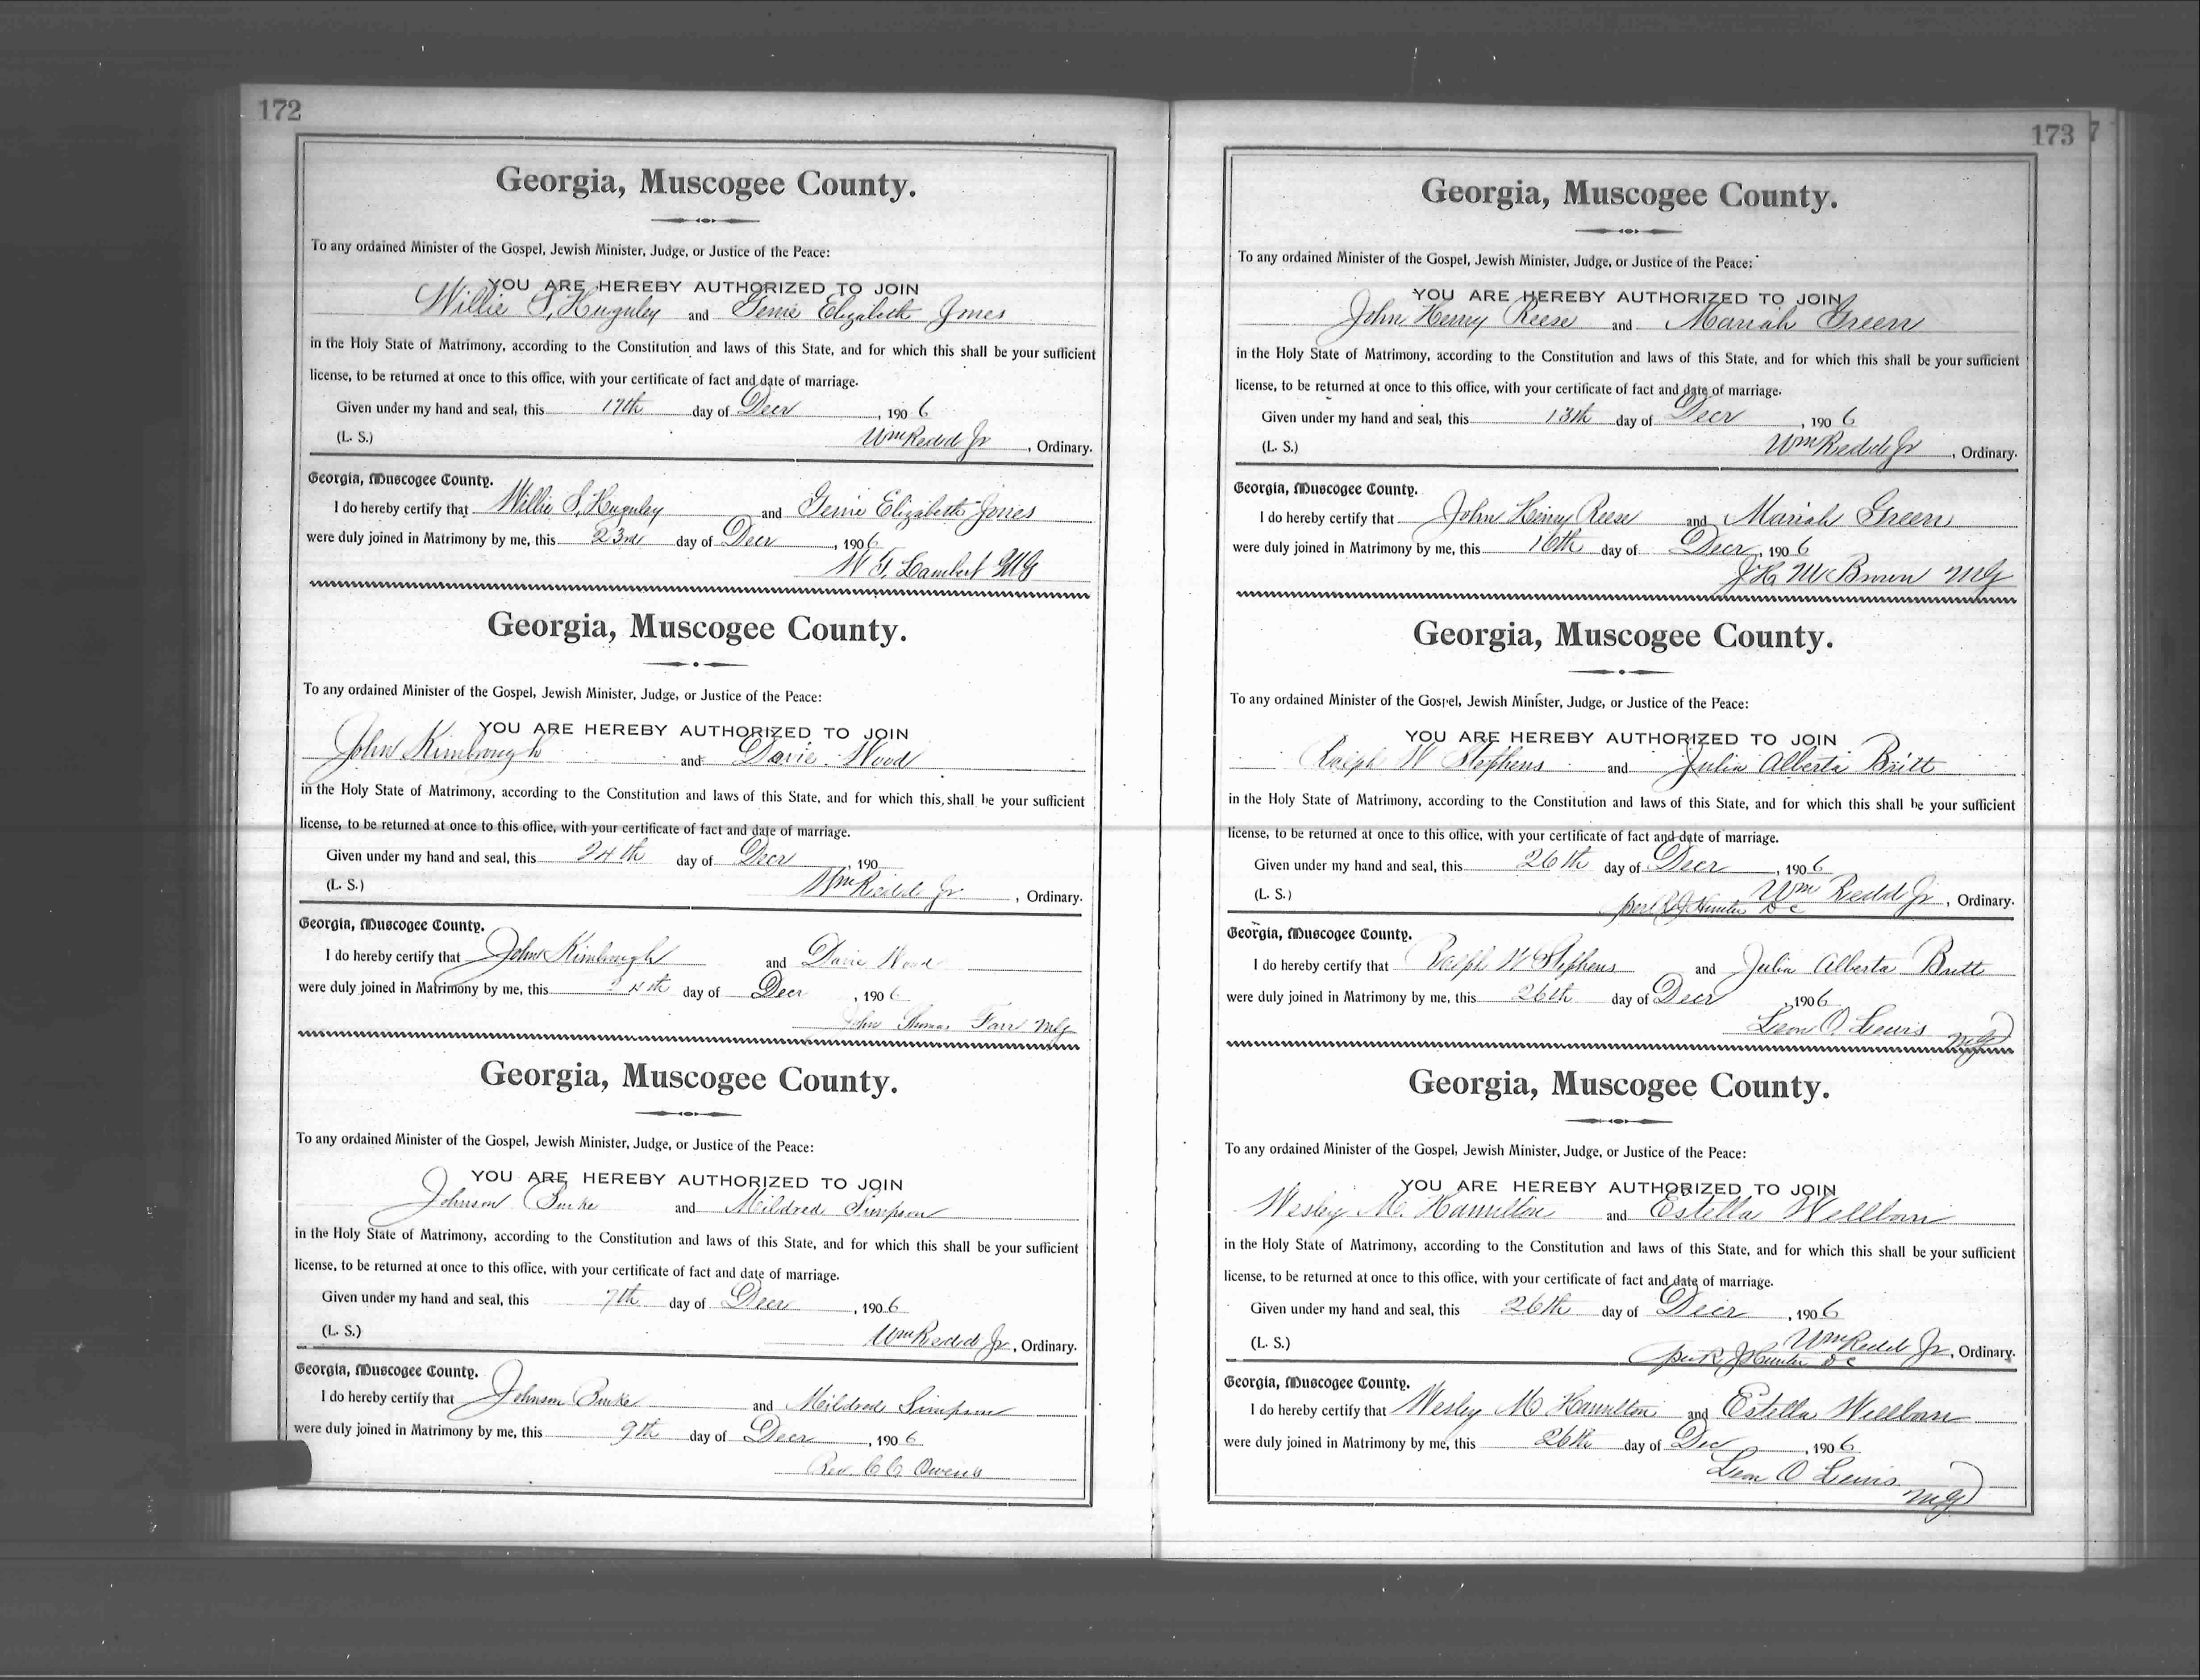 172
Georgia, Muscogee County.
To any ordained Minister of the Gospel, Jewish Minister, Judge, or Justice of the Peace:
YOU ARE HEREBY AUTHORIZED TO JOIN
Willie S. Huguley and Genie Elizabeth Jones
in the Holy State of Matrimony, according to the Constitution and laws of this State, and for which this shall be your sufficient
license, to be returned at once to this office, with your certificate of fact and date of marriage.
Given under my hand and seal, this 17th day of Decr, 1906
(L. S.) Wm Redd Jr, Ordinary.
Georgia, Muscogee County.
I do hereby certify that Willie S. Huguley and Genie Elizabeth Jones
were duly joined in Matrimony by me, this 23rd day of Decr, 1906
W. T. Lambert MG
Georgia, Muscogee County.
To any ordained Minister of the Gospel, Jewish Minister, Judge, or Justice of the Peace:
YOU ARE HEREBY AUTHORIZED TO JOIN
John Kimbrough and Davie Wood
in the Holy State of Matrimony, according to the Constitution and laws of this State, and for which this shall be your sufficient
license, to be returned at once to this office, with your certificate of fact and date of marriage.
Given under my hand and seal, this 24th day of Decr, 190
(L. S.) Wm Redd Jr, Ordinary.
Georgia, Muscogee County.
I do hereby certify that John Kimbrough and Davie Wood
were duly joined in Matrimony by me, this 24th day of Decr, 1906
John Thomas Farr MG
Georgia, Muscogee County.
To any ordained Minister of the Gospel, Jewish Minister, Judge, or Justice of the Peace:
YOU ARE HEREBY AUTHORIZED TO JOIN
Johnson Burke and Mildred Simpson
in the Holy State of Matrimony, according to the Constitution and laws of this State, and for which this shall be your sufficient
license, to be returned at once to this office, with your certificate of fact and date of marriage.
Given under my hand and seal, this 7th day of Decr, 1906
(L. S.) Wm Redd Jr, Ordinary.
Georgia, Muscogee County.
I do hereby certify that Johnson Burke and Mildred Simpson
were duly joined in Matrimony by me, this 9th day of Decr, 1906
Rev. C C Owens
173
Georgia, Muscogee County.
To any ordained Minister of the Gospel, Jewish Minister, Judge, or Justice of the Peace:
YOU ARE HEREBY AUTHORIZED TO JOIN
John Henry Reese and Mariah Green
in the Holy State of Matrimony, according to the Constitution and laws of this State, and for which this shall be your sufficient
license, to be returned at once to this office, with your certificate of fact and date of marriage.
Given under my hand and seal, this 13th day of Decr, 1906
(L. S.) Wm Redd Jr, Ordinary.
Georgia, Muscogee County.
I do hereby certify that John Henry Reese and Mariah Green
were duly joined in Matrimony by me, this 16th day of Decr, 1906
J H McBrown MG
Georgia, Muscogee County.
To any ordained Minister of the Gospel, Jewish Minister, Judge, or Justice of the Peace:
YOU ARE HEREBY AUTHORIZED TO JOIN
Ralph W Stephens and Julia Alberta Britt
in the Holy State of Matrimony, according to the Constitution and laws of this State, and for which this shall be your sufficient
license, to be returned at once to this office, with your certificate of fact and date of marriage.
Given under my hand and seal, this 26th day of Decr, 1906
(L. S.) Wm Redd Jr, Ordinary.
per R J Hunter D C
Georgia, Muscogee County.
I do hereby certify that Ralph W Stephens and Julia Alberta Britt
were duly joined in Matrimony by me, this 26th day of Decr, 1906
Leon O. Lewis MG
Georgia, Muscogee County.
To any ordained Minister of the Gospel, Jewish Minister, Judge, or Justice of the Peace:
YOU ARE HEREBY AUTHORIZED TO JOIN
Wesley M. Hamilton and Estella Wellborn
in the Holy State of Matrimony, according to the Constitution and laws of this State, and for which this shall be your sufficient
license, to be returned at once to this office, with your certificate of fact and date of marriage.
Given under my hand and seal, this 26th day of Decr, 1906
(L. S.) Wm Redd Jr, Ordinary.
per R J Hunter D C
Georgia, Muscogee County.
I do hereby certify that Wesley M Hamilton and Estella Wellborn
were duly joined in Matrimony by me, this 26th day of Dec, 1906
Leon O Lewis
MG